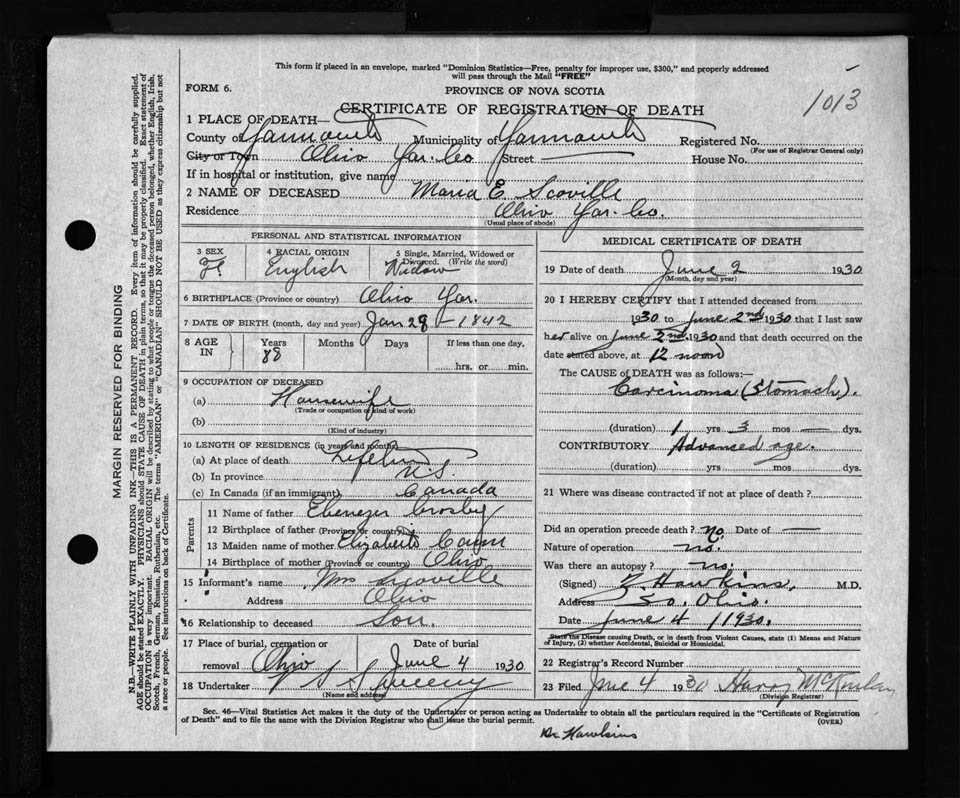 1013
This form if placed in an envelope, marked "Dominion Statistics—Free, penalty for improper use, $300," and properly addressed
will pass through the Mail "FREE"
FORM 6.
PROVINCE OF NOVA SCOTIA
CERTIFICATE OF REGISTRATION OF DEATH
1 PLACE OF DEATH—
County of Yarmouth Municipality of Yarmouth Registered No.
(For use of Registrar General only)
City or Town Ohio Yar. Co Street — House No.
If in hospital or institution, give name
2 NAME OF DECEASED Maria E Scoville
Residence Ohio Yar. Co.
(Usual place of abode)
PERSONAL AND STATISTICAL INFORMATION
3 SEX 4 RACIAL ORIGIN 5 Single, Married, Widowed or
Divorced. (Write the word)
F English Widow
6 BIRTHPLACE (Province or country) Ohio Yar.
7 DATE OF BIRTH (month, day and year) Jan 28 - 1842
8 AGE IN Years Months Days If less than one day,
88 hrs. or min.
9 OCCUPATION OF DECEASED
(a) Housewife
(Trade or occupation of kind of work)
(b)
(Kind of industry)
10 LENGTH OF RESIDENCE (in years and months)
(a) At place of death Lifetime
(b) In province N. S.
(c) In Canada (if an immigrant) Canada
Parents
11 Name of father Ebenezer Crosby
12 Birthplace of father (Province or country)
13 Maiden name of mother Elizabeth
14 Birthplace of mother (Province or country) Ohio
15 Informant's name Wm Scoville
" Address Ohio
16 Relationship to deceased Son.
17 Place of burial, cremation or Date of burial
removal Ohio June 4 1930
18 Undertaker V S Sweeny
(Name and address)
MEDICAL CERTIFICATE OF DEATH
19 Date of death June 2 1930
(Month, day and year)
20 I HEREBY CERTIFY that I attended deceased from
1930 to June 2nd 1930 that I last saw
her alive on June 2nd 1930 and that death occurred on the
date stated above, at 12 noon
The CAUSE OF DEATH was as follows:—
Carcinoma (Stomach).
(duration) 1 yrs 3 mos — dys.
CONTRIBUTORY Advanced age.
(duration) yrs mos dys.
21 Where was disease contracted if not at place of death?
Did an operation precede death? no. Date of —
Nature of operation no.
Was there an autopsy? no.
(Signed) Z. Hawkins, M.D.
Address So. Ohio.
Date June 4 1930.
State the Disease causing Death, or in death from Violent Causes, state (1) Means and Nature
of Injury, (2) whether Accidental, Suicidal or Homicidal.
22 Registrar's Record Number
23 Filed June 4 1930 Harry McKinlay
(Division Registrar)
Sec. 46—Vital Statistics Act makes it the duty of the Undertaker or person acting as Undertaker to obtain all the particulars required in the "Certificate of Registration
of Death" and to file the same with the Division Registrar who shall issue the burial permit.
(OVER)
Dr Hawkins
MARGIN RESERVED FOR BINDING
N.B.—WRITE PLAINLY WITH UNFADING INK—THIS IS A PERMANENT RECORD. Every item of information should be carefully supplied.
AGE should be stated EXACTLY. PHYSICIANS should STATE CAUSE OF DEATH in plain terms, so that it may be properly classified. Exact statement of
OCCUPATION is very important. RACIAL ORIGIN will be described by stating to what people or tongue the deceased person belonged, whether English, Irish,
Scotch, French, German, Russian, Ruthenian, etc. The terms "AMERICAN" or "CANADIAN" SHOULD NOT BE USED as they express citizenship but not
a race or people. See instructions on back of Certificate.